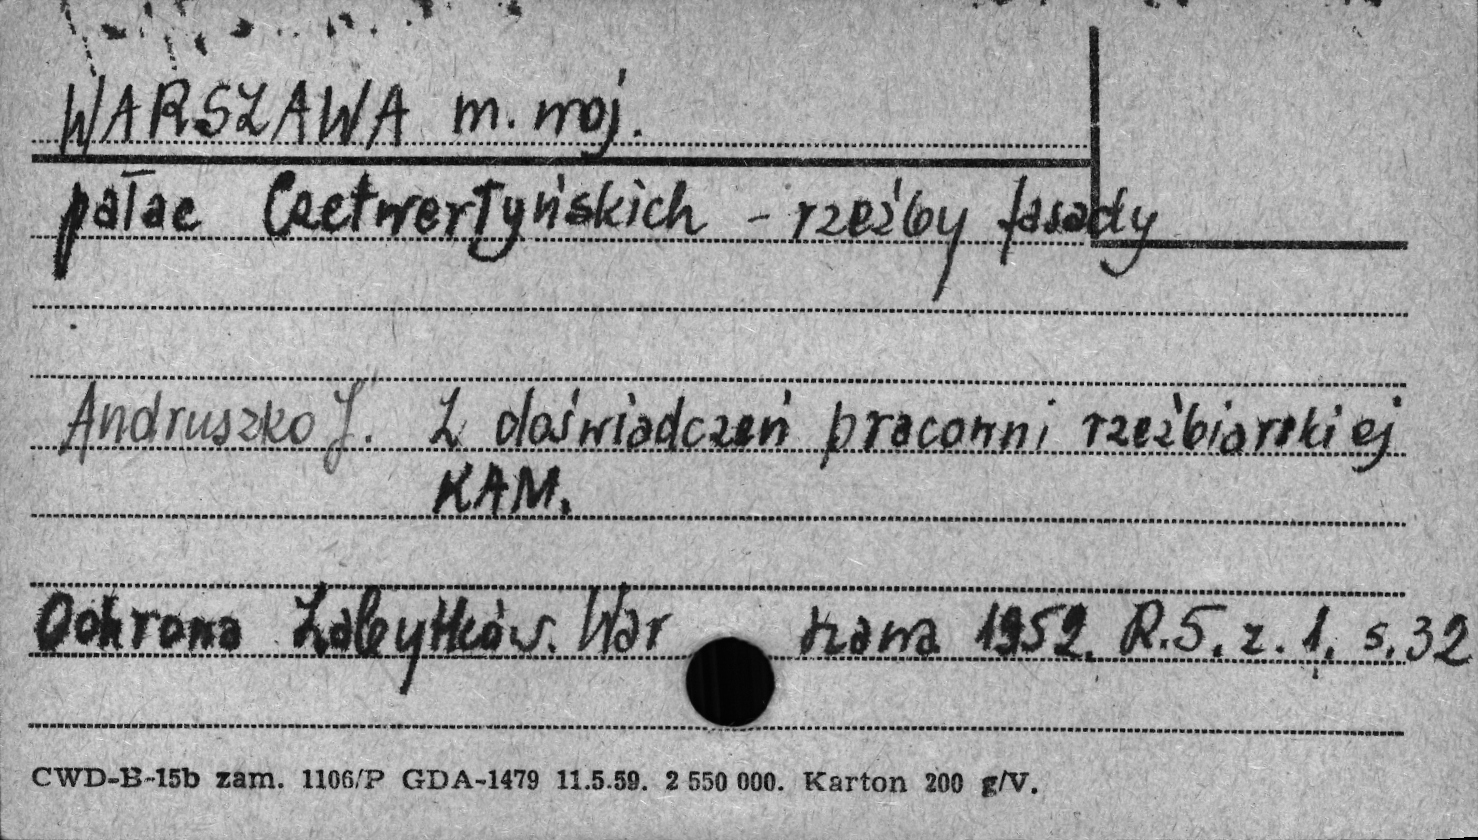 WARSZAWA m. woj.
pałac Czetwertyńskich - rzeźby fasady
Andruszko J. Z doświadczeń pracowni rzeźbiarskiej
KAM.
Ochrona Zabytków. War szawa 1952. R.5. z. 1. s. 32
CWD-B-15b zam. 1106/P GDA-1479 11.5.59. 2 550 000. Karton 200 g/V.